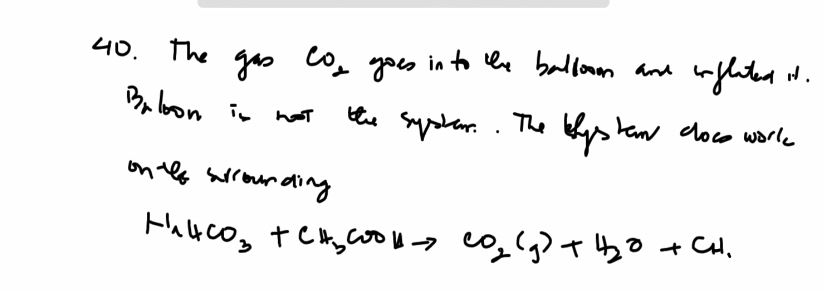 40. The gas CO₂ goes in to the balloon and inflated it.
Baloon is not the system. The system does work
on the surrounding
NaHCO₃ + CH₃COOH → CO₂(g) + H₂O + CH.